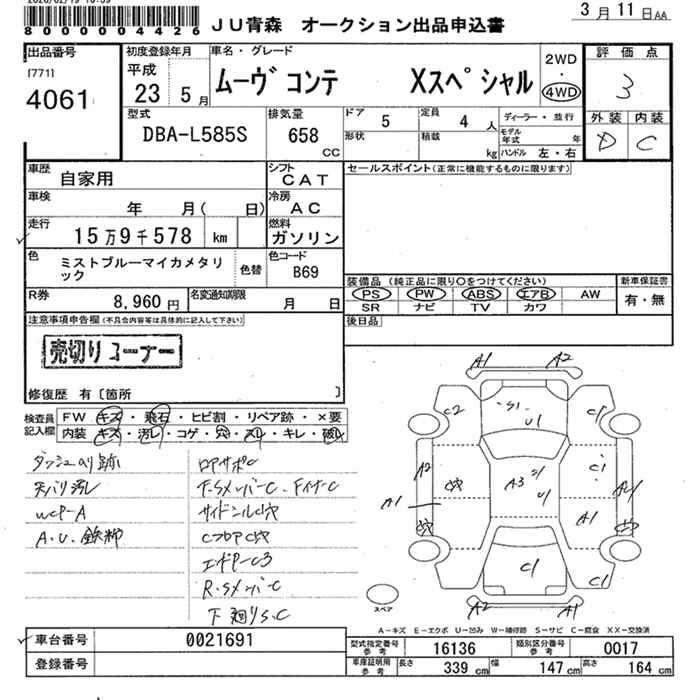 8000004426
JU青森 オークション出品申込書
3月11日AA
出品番号
[771]
4061
初度登録年月
平成
23 5月
車名・グレード
ムーヴ コンテ Xスペシャル
2WD
・
4WD
評価点
3
外装 内装
D C
型式
DBA-L585S
排気量
658
CC
ドア
5
定員
4 人
形状
積載
kg
ディーラー・並行
モデル年式 年
ハンドル 左・右
車歴
自家用
シフト
CAT
セールスポイント(正常に機能するものに限ります)
車検
年 月( 日)
冷房
AC
走行
15万9千578 km
燃料
ガソリン
色
ミストブルーマイカメタリック
色替
色コード
B69
装備品 (純正品に限り○をつけてください)
PS PW ABS エアB AW
SR ナビ TV カワ
新車保証書
有・無
R券
8,960円
名変通知期限
月 日
後日品
注意事項申告欄(不具合内容等は具体的に記入して下さい)
売切りコーナー
修復歴 有〔箇所 〕
検査員記入欄
FW キズ・飛石・ヒビ割・リペア跡・×要
内装 キズ・汚レ・コゲ・穴・スレ・キレ・破レ
ダッシュのり跡
天バリ汚レ
WCP-A
A.U.鉄粉
ロアサポC
F.SメンバーC
サイドシルC穴
CフロアC穴
R.SメンバーC
下廻りS.C
A1 A2
C2 S1 U1 C1
A2 A3 U1 C1
A1 A1
C1 C1
A2 A1
スペア
A－キズ E－エクボ U－凹み W－補修跡 S－サビ C－腐食 XX－交換済
車台番号
0021691
登録番号
型式指定番号 参考
16136
類別区分番号 参考
0017
車庫証明用 参考
長さ 339 cm 幅 147 cm 高さ 164 cm